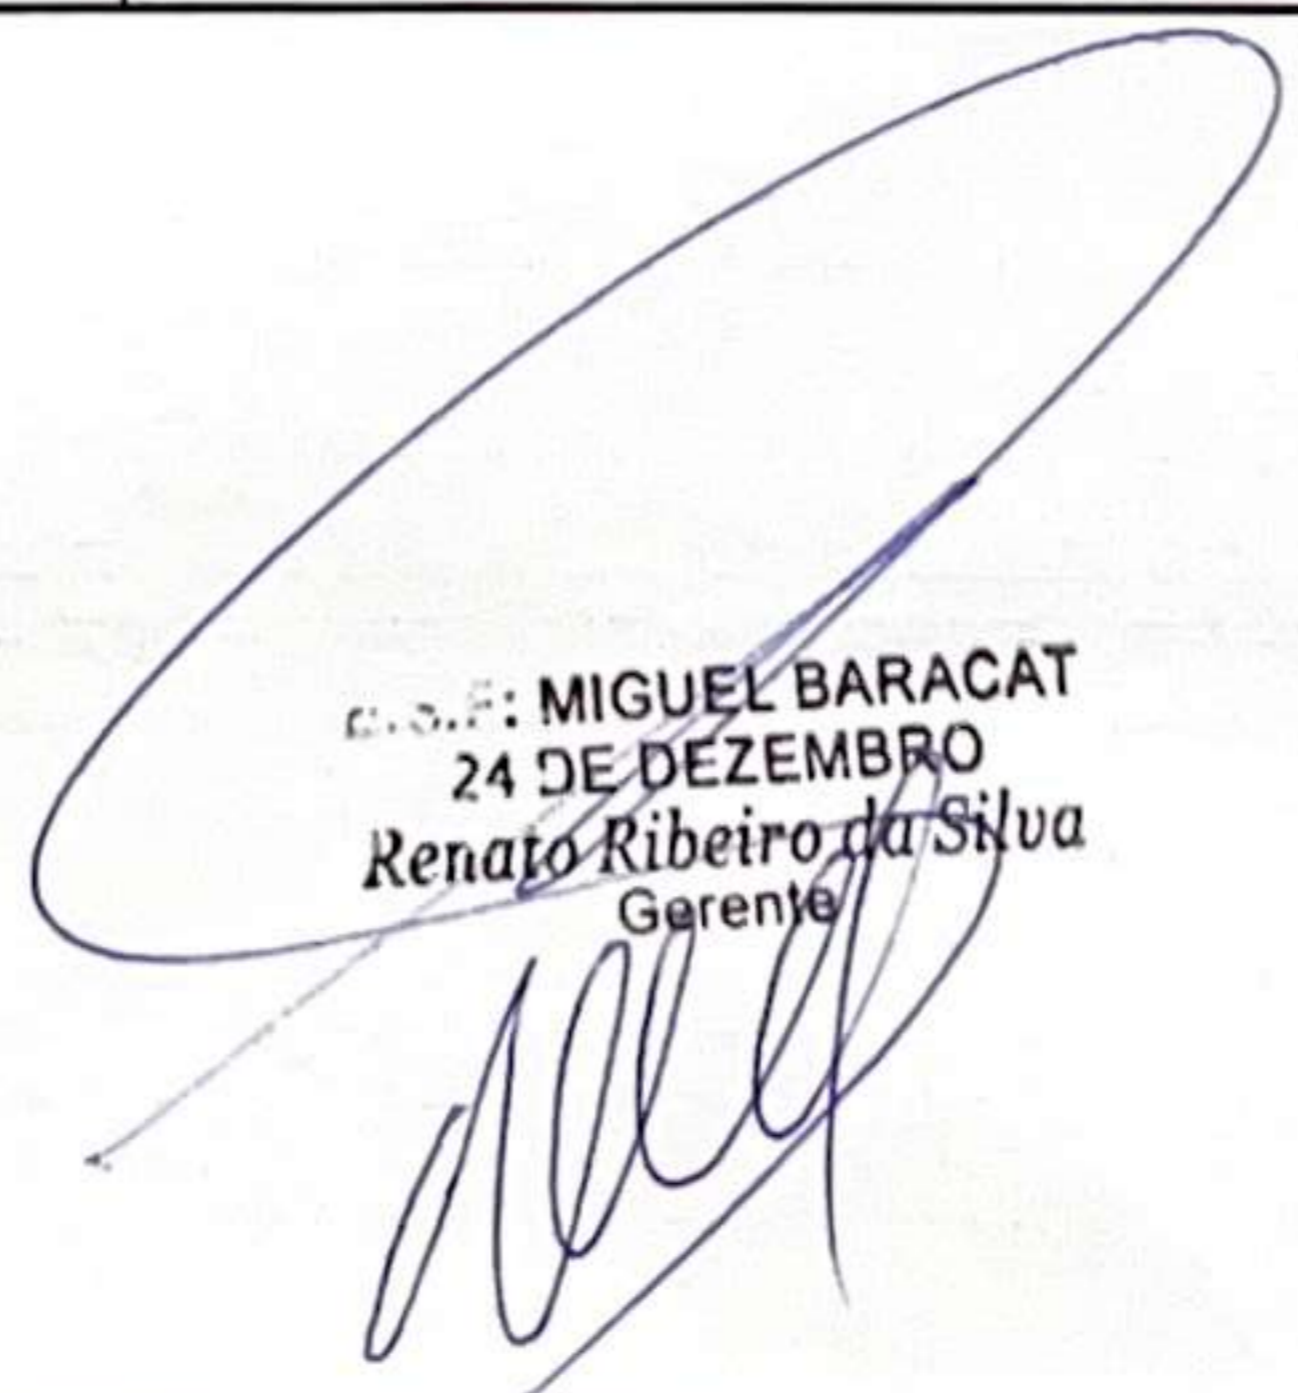 MIGUEL BARACAT
24 DE DEZEMBRO
Renato Ribeiro da Silva
Gerente